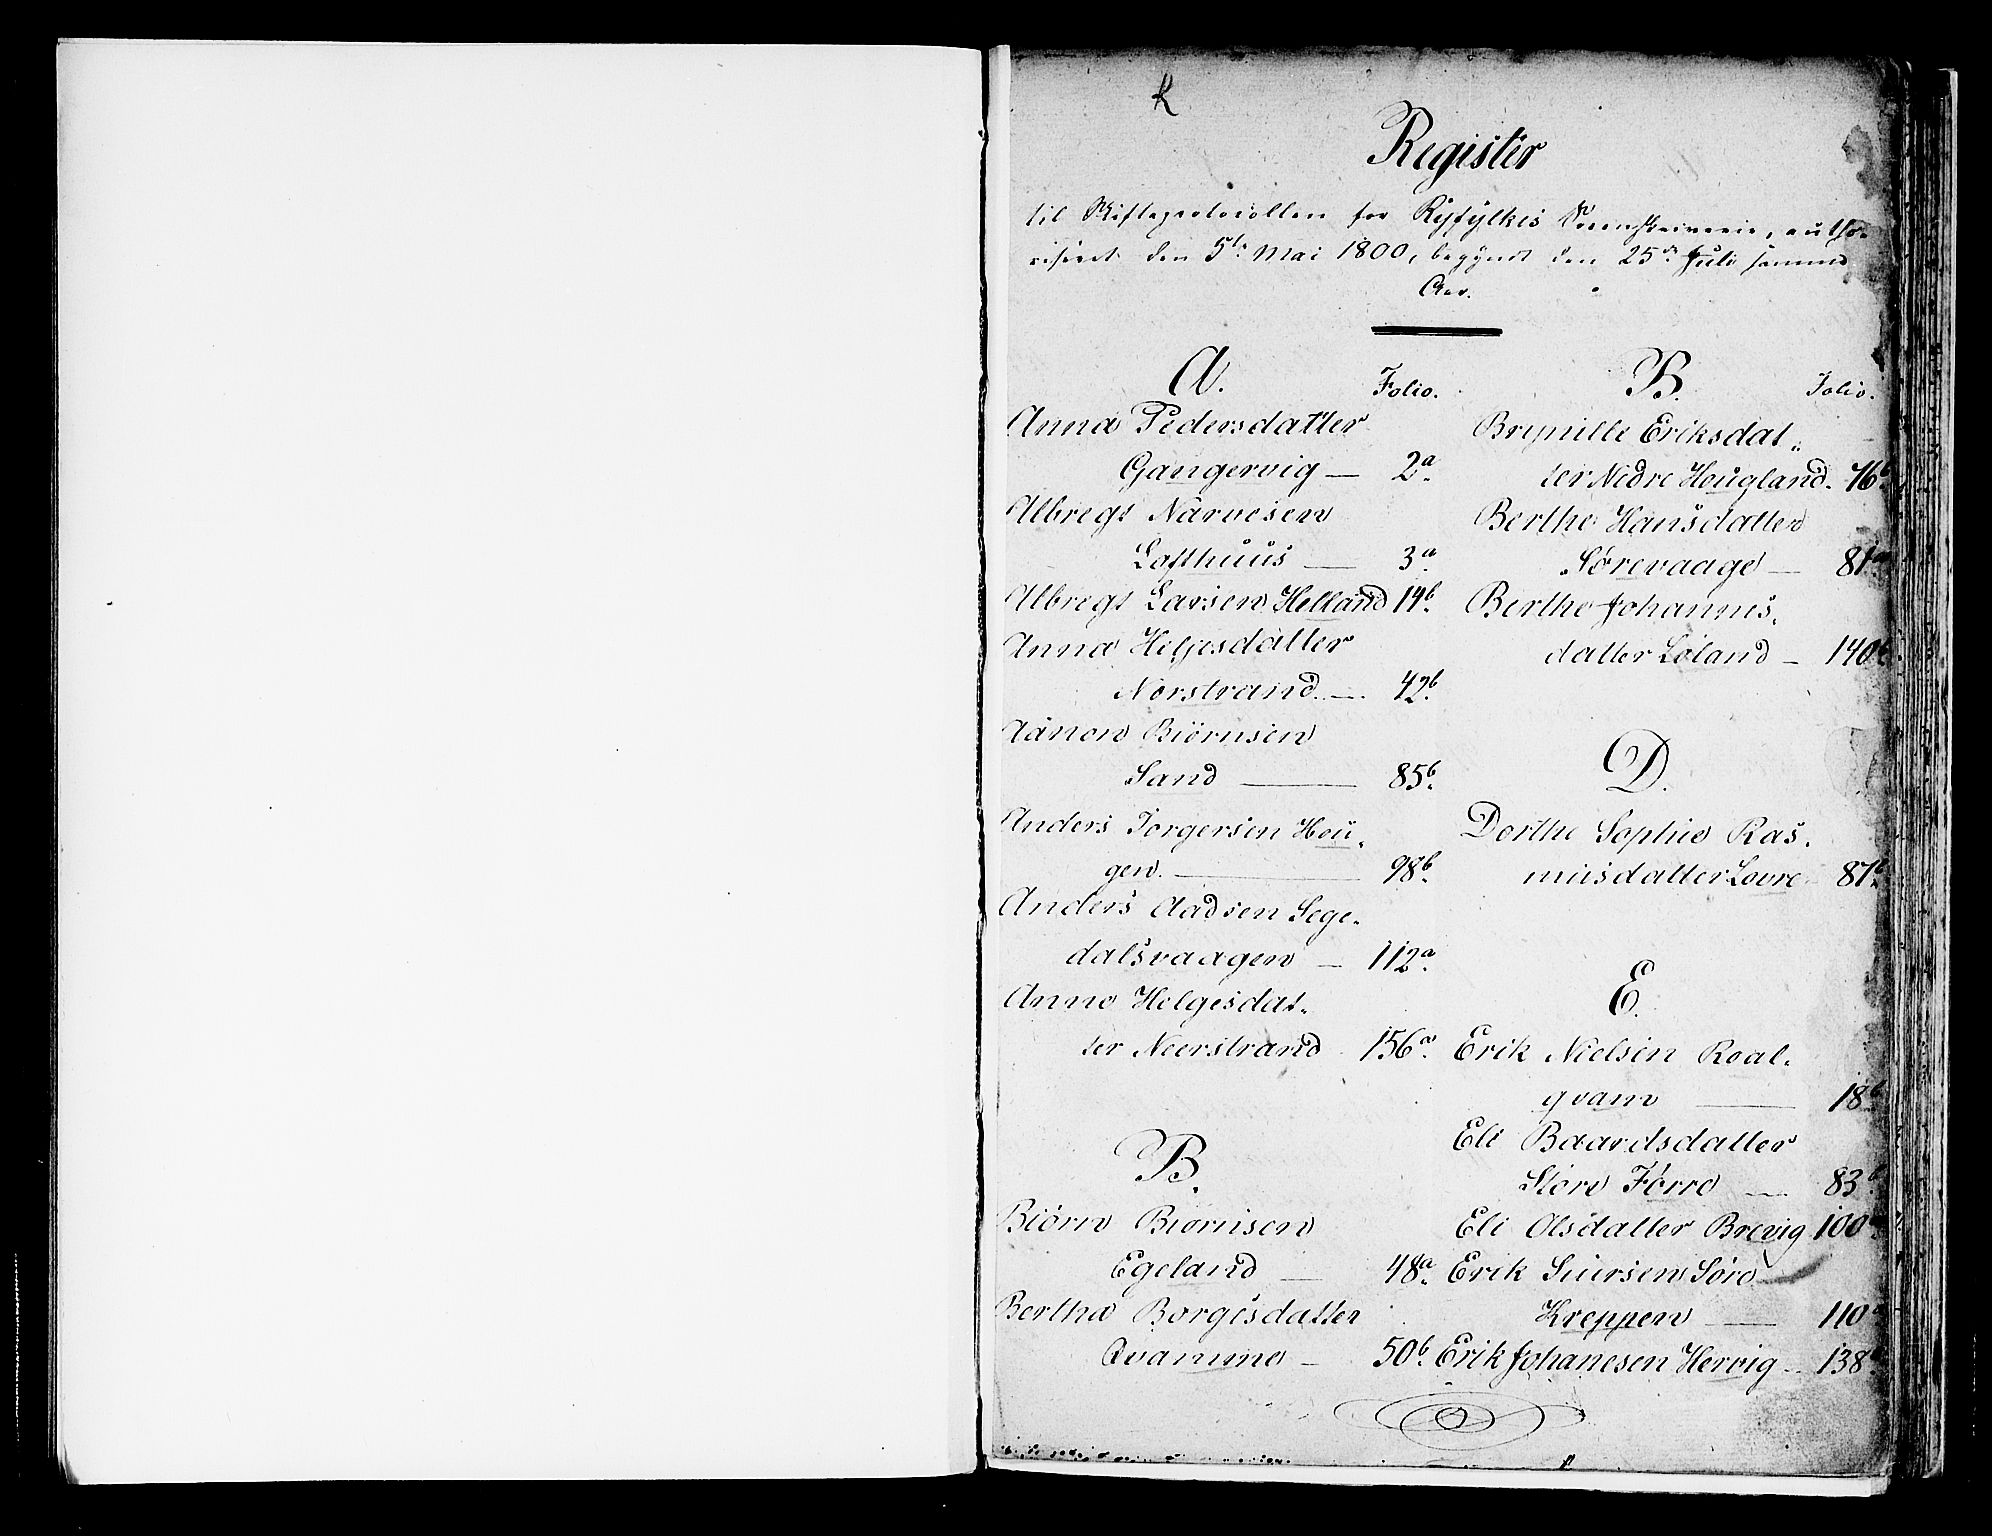 R
Register
til Skifteprotocollen for Ryfylkes Sorenskriverie, autho-
riseret den 5te Mai 1800, begyndt den 25de Juli samme
Aar.
A. Folio.
Anna Pedersdatter
Gangervig — 2a.
Albregt Narvesen
Lofthuus — 3a.
Albregt Larsen Helland 14b.
Anna Helgesdatter
Nerstrand — 42b.
Aanon Biörnsen
Sand — 85b.
Anders Torgersen Hou-
gen. — 98b.
Anders Aadsen Sege-
dalsvaagen — 112a.
Anne Helgesdat-
ter Neerstrand 156a.
B.
Biörn Biörnsen
Egeland — 48a.
Bertha Borgesdatter
Qvamme — 50b.
B. Folio.
Brynille Eriksdat-
ter Nedre Hougland. 76b.
Berthe Hansdatter
Sørevaage — 81a.
Berthe Johannes-
datter Løland — 140
D.
Dorthe Sophie Ras-
musdatter Lovre 87b.
E.
Erik Nielsen Roal-
qvam — 18b.
Eli Baardsdatter
Store Førre — 83b.
Eli Olsdatter Brevig 100
Erik Siursen Søre
Kreppen — 110
Erik Johanesen Hervig — 138